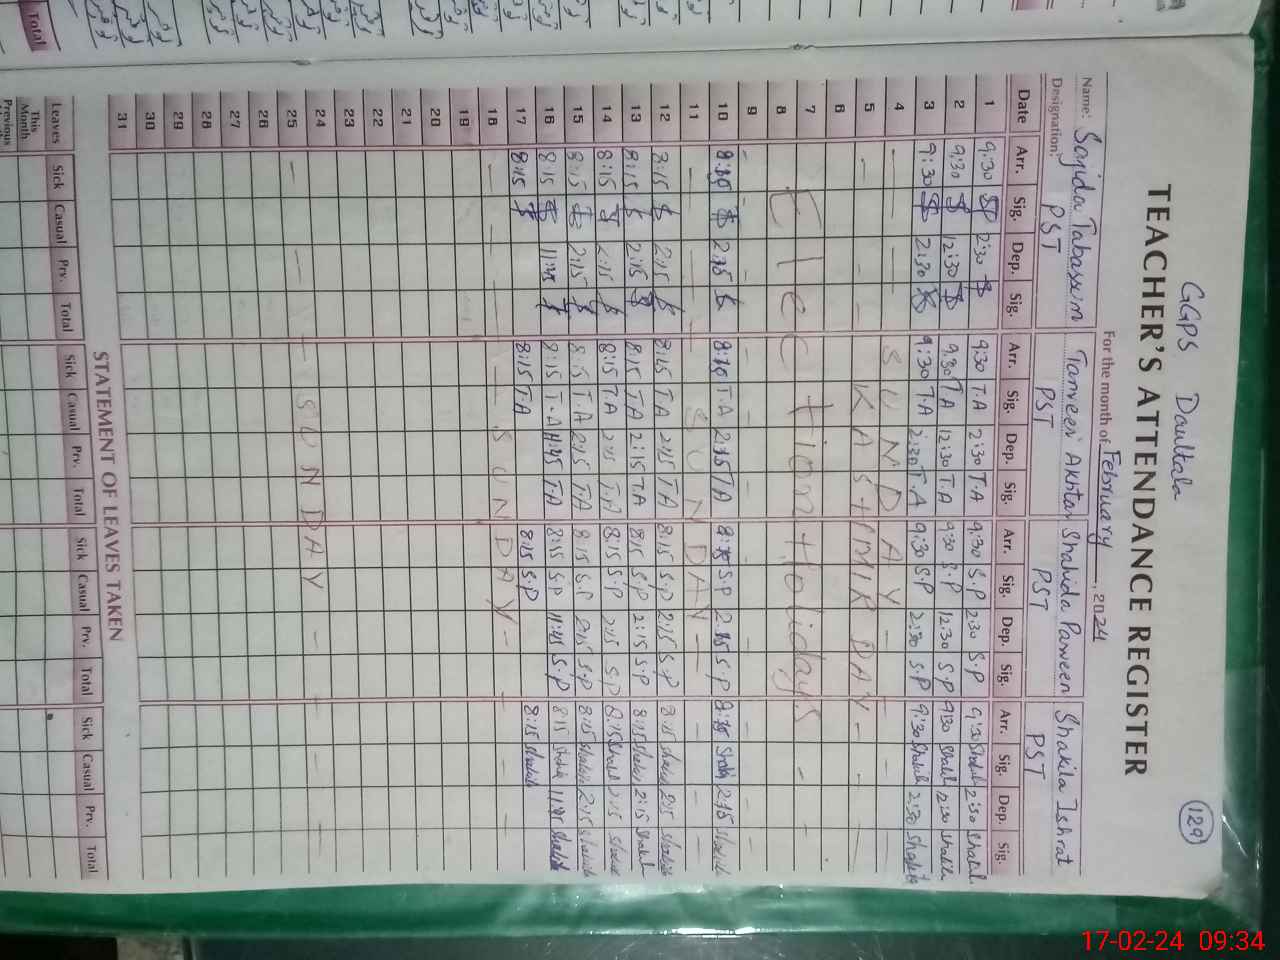 GGPS Daultala
129
TEACHER'S ATTENDANCE REGISTER
For the month of February, 2024
Name: Sajida Tabassum Tanveer Akhtar Shahida Parveen Shakila Ishrat
Designation: PST PST PST PST
Date Arr. Sig. Dep. Sig. Arr. Sig. Dep. Sig. Arr. Sig. Dep. Sig. Arr. Sig. Dep. Sig.
1 9:30 2:30 9:30 T.A 2:30 T.A 9:30 S.P 2:30 S.P 9:30 Shakil 2:30 Shakil
2 9:30 12:30 9:30 T.A 12:30 T.A 9:30 S.P 12:30 S.P 9:30 Shakil 12:30 Shakil
3 9:30 2:30 9:30 T.A 2:30 T.A 9:30 S.P 2:30 S.P 9:30 Shakil 2:30 Shakila
4 — — — — SUNDAY - - -
5 - - - - KASHMIR DAY - - -
6
7 Election Holidays - -
8
9 - - - - - - - - - -
10 8:30 2:15 T.A 2:15 T.A S.P 2:15 S.P 2:15
11 - - - - SUNDAY - - - -
12 8:15 2:15 8:15 T.A 2:15 T.A 8:15 S.P 2:15 S.P 8:15 2:15
13 8:15 2:15 8:15 T.A 2:15 T.A 8:15 S.P 2:15 S.P 8:15 2:15 Shakil
14 8:15 2:15 8:15 T.A 2:15 T.A 8:15 S.P 2:15 S.P 8:15 2:15
15 8:15 2:15 8:15 T.A 2:15 T.A 8:15 S.P 2:15 S.P 8:15 2:15
16 8:15 11:45 8:15 T.A 11:45 T.A 8:15 S.P 11:45 S.P 8:15 11:45
17 8:15 8:15 T.A 8:15 S.P 8:15
18 - - - - SUNDAY - - -
19
20
21
22
23
24
25 - - - SUNDAY - - -
26
27
28
29
30
31
STATEMENT OF LEAVES TAKEN
Leaves Sick Casual Prv. Total Sick Casual Prv. Total Sick Casual Prv. Total Sick Casual Prv. Total
This Month
Previous
Total
17-02-24 09:34